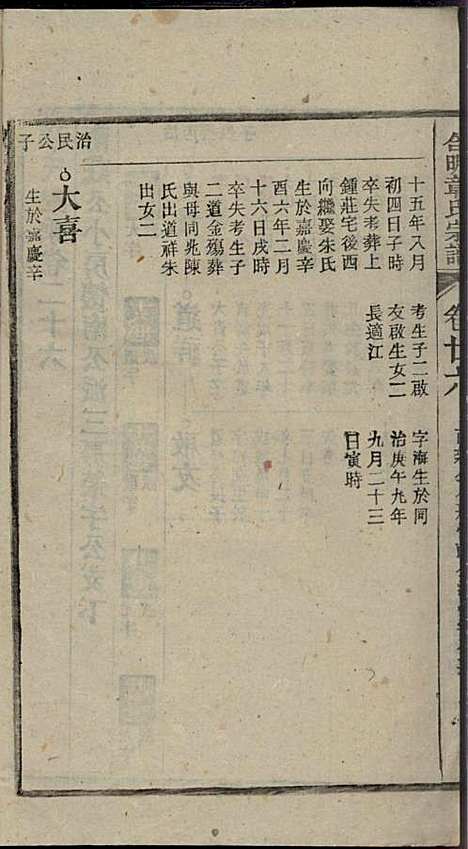 合明章氏宗譜
卷廿六
十五年八月
初四日子時
卒失考葬上
鍾莊宅後酉
向繼娶朱氏
生於嘉慶辛
酉六年二月
十六日戌時
卒失考生子
二道金殤葬
與母同兆陳
氏出道祥朱
氏出女二
考生子二啟
友啟生女二
長適江
字海生於同
治庚午九年
九月二十三
日寅時
治民公子
大喜
生於嘉慶辛